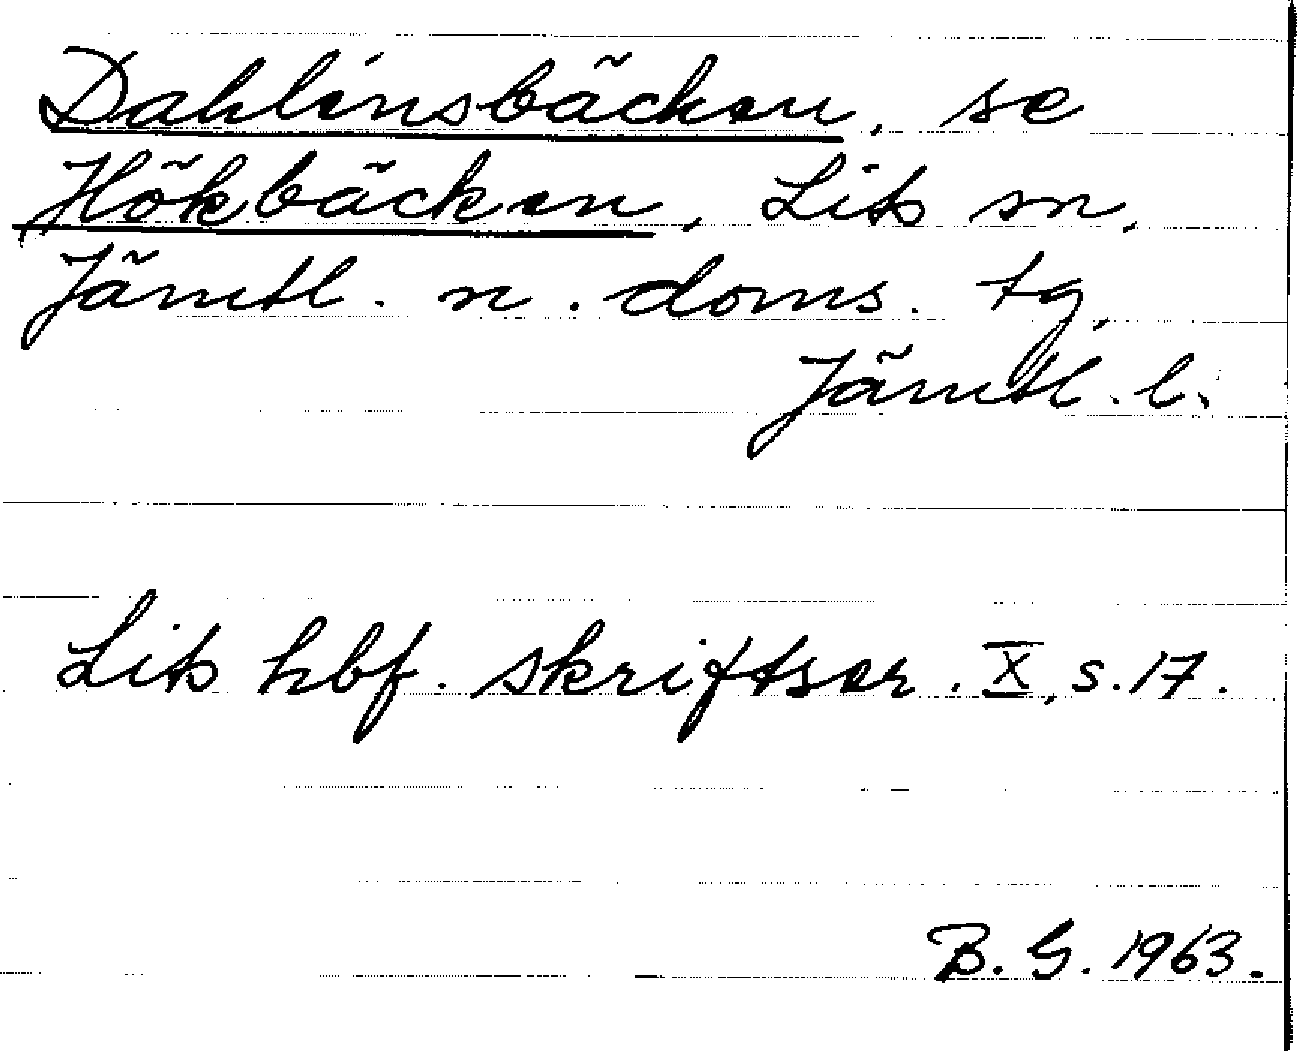 Dahlinsbäcken, se
Hökbäcken, Lits sn,
Jämtl. n. doms. tg,
Jämtl. l.
Lits hbf. skriftser. X, s. 17.
B. G. 1963.